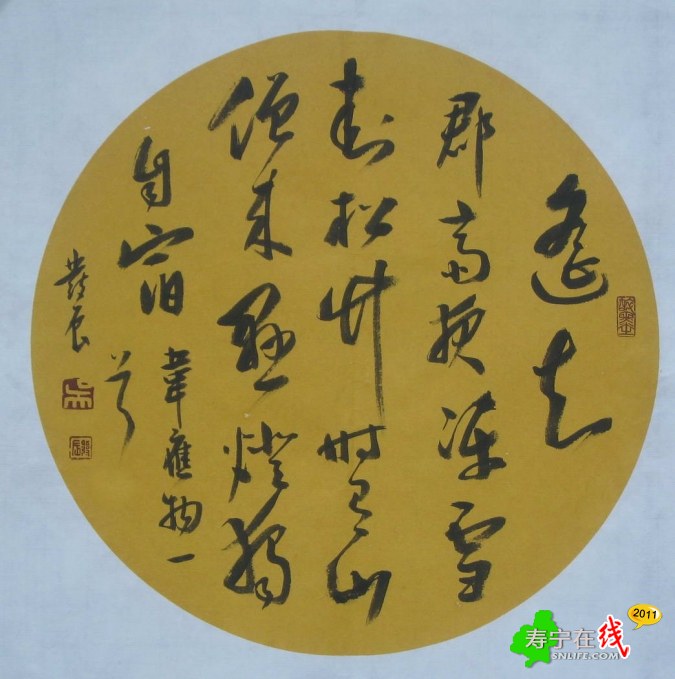 遙知
郡齋夜凍雪
封松竹時有山
僧來懸燈獨
自宿
韋應物一
首
辰
寿宁在线
2011
SNLIFE.COM